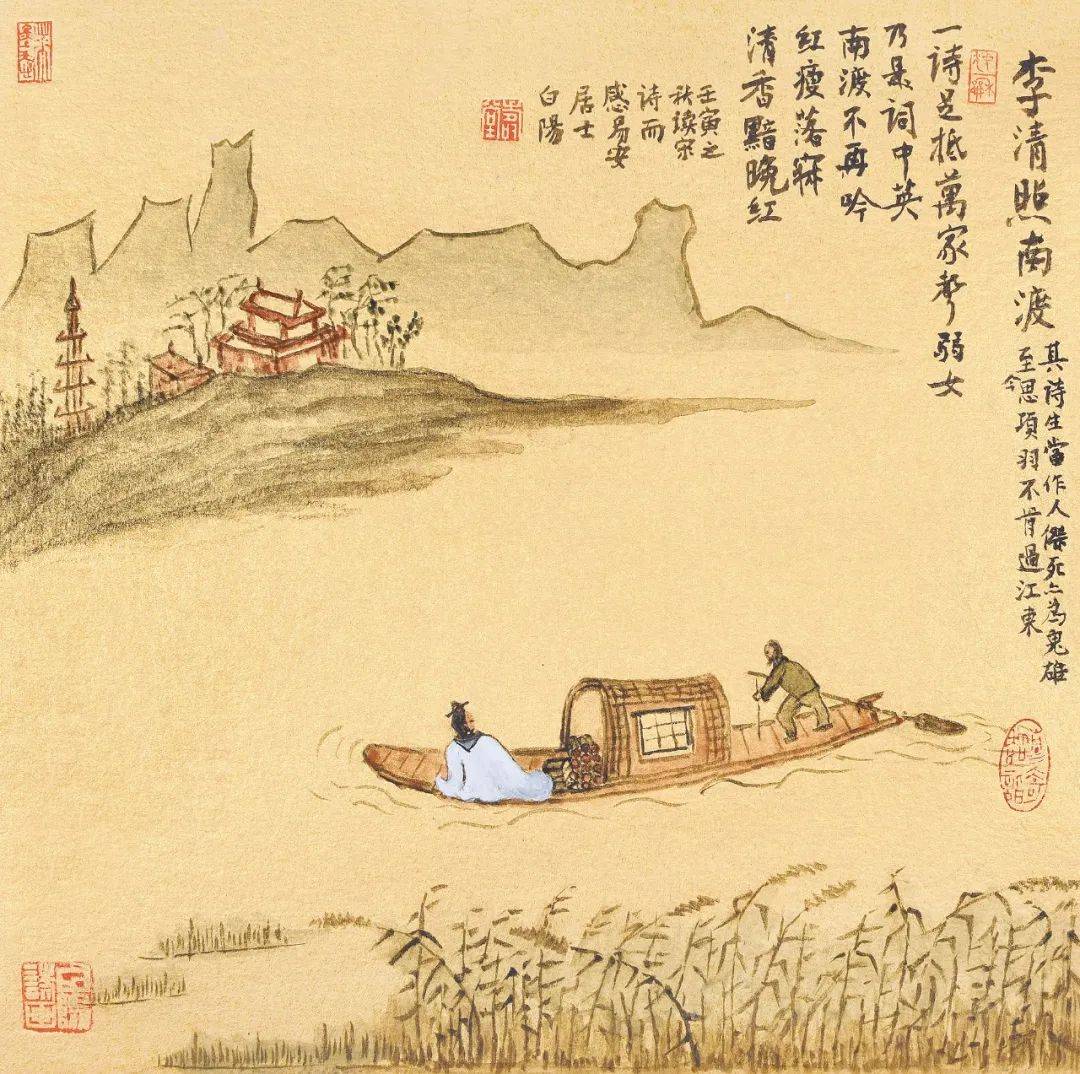 李清照南渡
其诗生當作人傑死亦為鬼雄
至今思項羽不肯過江東
一诗足抵萬家弱女
乃是词中英
南渡不再吟
红瘦落寐
清香黯晚红
壬寅之
秋读宋
诗而
感易安
居士
白陽